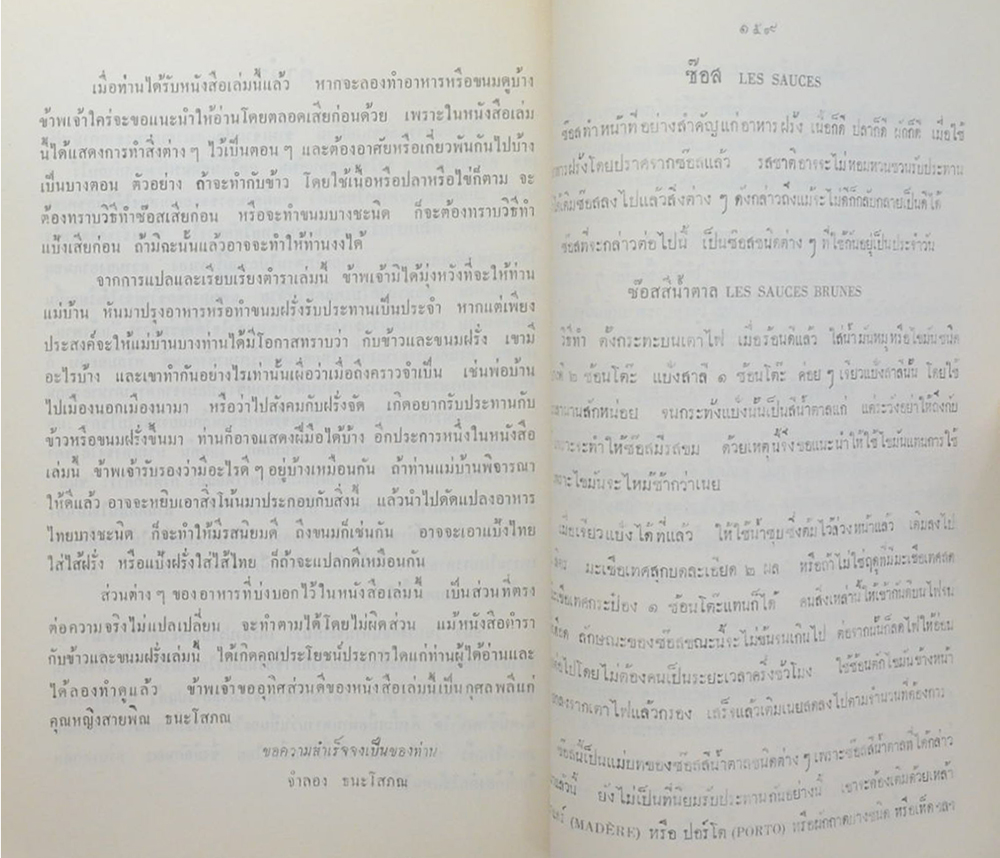 เมื่อท่านได้รับหนังสือเล่มนี้แล้ว หากจะลองทำอาหารหรือขนมดูบ้าง
ข้าพเจ้าใคร่จะขอแนะนำให้อ่านโดยตลอดเสียก่อนด้วย เพราะในหนังสือเล่ม
นี้ได้แสดงการทำสิ่งต่างๆ ไว้เป็นตอนๆ และต้องอาศัยหรือเกี่ยวพันกันไปบ้าง
เป็นบางตอน ตัวอย่าง ถ้าจะทำกับข้าว โดยใช้เนื้อหรือปลาหรือไข่ก็ตาม จะ
ต้องทราบวิธีทำซ๊อสเสียก่อน หรือจะทำขนมบางชะนิด ก็จะต้องทราบวิธีทำ
แป้งเสียก่อน ถ้ามิฉะนั้นแล้วอาจจะทำให้ท่านงงได้
จากการแปลและเรียบเรียงตำราเล่มนี้ ข้าพเจ้ามิได้มุ่งหวังที่จะให้ท่าน
แม่บ้าน หันมาปรุงอาหารหรือทำขนมฝรั่งรับประทานเป็นประจำ หากแต่เพียง
ประสงค์จะให้แม่บ้านบางท่านได้มีโอกาสทราบว่า กับข้าวและขนมฝรั่ง เขามี
อะไรบ้าง และเขาทำกันอย่างไรเท่านั้นเผื่อว่าเมื่อถึงคราวจำเป็น เช่นพ่อบ้าน
ไปเมืองนอกเมืองนามา หรือว่าไปสังคมกับฝรั่งจัด เกิดอยากรับประทานกับ
ข้าวหรือขนมฝรั่งขึ้นมา ท่านก็อาจแสดงฝีมือได้บ้าง อีกประการหนึ่งในหนังสือ
เล่มนี้ ข้าพเจ้ารับรองว่ามีอะไรดีๆ อยู่บ้างเหมือนกัน ถ้าท่านแม่บ้านพิจารณา
ให้ดีแล้ว อาจจะหยิบเอาสิ่งโน้นมาประกอบกับสิ่งนี้ แล้วนำไปดัดแปลงอาหาร
ไทยบางชะนิด ก็จะทำให้มีรสนิยมดี ถึงขนมก็เช่นกัน อาจจะเอาแป้งไทย
ใส่ไส้ฝรั่ง หรือแป้งฝรั่งใส่ไส้ไทย ก็ถ้าจะแปลกดีเหมือนกัน
ส่วนต่างๆ ของอาหารที่บ่งบอกไว้ในหนังสือเล่มนี้ เป็นส่วนที่ตรง
ต่อความจริงไม่แปลเปลี่ยน จะทำตามได้โดยไม่ผิดส่วน แม้หนังสือตำรา
กับข้าวและขนมฝรั่งเล่มนี้ ได้เกิดคุณประโยชน์ประการใดแก่ท่านผู้ได้อ่านและ
ได้ลองทำดูแล้ว ข้าพเจ้าขออุทิศส่วนดีของหนังสือเล่มนี้เป็นกุศลพลีแก่
คุณหญิงสายพิณ ธนะโสภณ
ขอความสำเร็จจงเป็นของท่าน
จำลอง ธนะโสภณ
๑๕๙
ซ๊อส LES SAUCES
ซ๊อสทำหน้าที่อย่างสำคัญแก่อาหารฝรั่ง เนื้อก็ดี ปลาก็ดี ผักก็ดี เมื่อใช้
ฝรั่งโดยปราศจากซ๊อสแล้ว รสชาติอาจจะไม่หอมหวนชวนรับประทาน
ได้เติมซ๊อสลงไปแล้วสิ่งต่างๆ ดังกล่าวถึงแม้จะไม่ดีก็กลับกลายเป็นดีได้
ซ๊อสที่จะกล่าวต่อไปนี้ เป็นซ๊อสชนิดต่างๆ ที่ใช้กันอยู่เป็นประจำวัน
ซ๊อสสีน้ำตาล LES SAUCES BRUNES
วิธีทำ ตั้งกระทะบนเตาไฟ เมื่อร้อนดีแล้ว ใส่น้ำมันหมูหรือไขมันชนิด
๒ ช้อนโต๊ะ แป้งสาลี ๑ ช้อนโต๊ะ ค่อยๆ เจียวแป้งสาลีนั้น โดยใช้
นานสักหน่อย จนกระทั่งแป้งนั้นเป็นสีน้ำตาลแก่ แต่ระวังอย่าให้ถึงกับ
เพราะจะทำให้ซ๊อสมีรสขม ด้วยเหตุนี้จึงขอแนะนำให้ใช้ไขมันแทนการใช้
เพราะไขมันจะไหม้ช้ากว่าเนย
เมื่อเจียวแป้งได้ที่แล้ว ให้ใช้น้ำซุบซึ่งต้มไว้ล่วงหน้าแล้ว เติมลงไป
มะเขือเทศสุกบดละเอียด ๒ ผล หรือถ้าไม่ใช่ฤดูที่มีมะเขือเทศสด
มะเขือเทศกระป๋อง ๑ ช้อนโต๊ะแทนก็ได้ คนสิ่งเหล่านี้ให้เข้ากันดีบนไฟจน
เดือด ลักษณะของซ๊อสขณะนี้จะไม่ข้นจนเกินไป ต่อจากนั้นก็ลดไฟให้อ่อน
ต่อไปโดยไม่ต้องคนเป็นระยะเวลาครึ่งชั่วโมง ใช้ช้อนตักไขมันข้างหน้า
ลงจากเตาไฟแล้วกรอง เสร็จแล้วเติมเนยสดลงไปตามจำนวนที่ต้องการ
ซ๊อสนี้เป็นแม่บทของซ๊อสสีน้ำตาลชนิดต่างๆ เพราะซ๊อสสีน้ำตาลที่ได้กล่าว
มาแล้วนี้ ยังไม่เป็นที่นิยมรับประทานกันอย่างนี้ เขาจะต้องเติมด้วยเหล้า
(MADÈRE) หรือ ปอร์โต (PORTO) หรือผักกาดบางชนิด หรือเห็ดฯลฯ